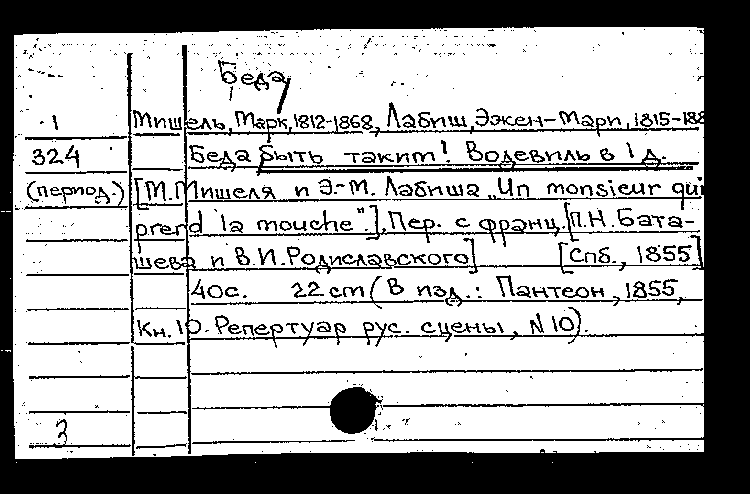 Беда
1 Мишель, Марк, 1812-1868, Лабиш, Эжен-Мари, 1815-188
324 Беда быть таким! Водевиль в 1 д.
(период.) [М. Мишеля и Э.-М. Лабиша „Un monsieur qui
prend la mouche".]. Пер. с франц. [П.Н. Бата-
шева и В.И. Родиславского] [Спб., 1855]
40с. 22 cm (В изд.: Пантеон, 1855,
Кн. 10. Репертуар рус. сцены, N 10).
3